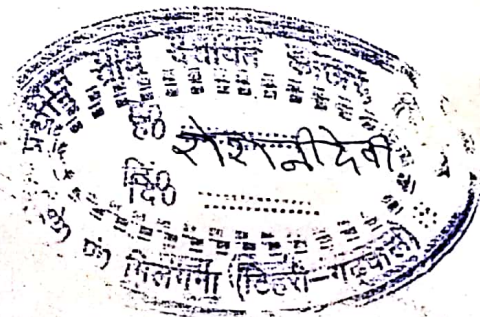 प्रधान ग्राम पंचायत
ह०
रोशनी देवी
दि०
भिलंगना (टिहरी-गढ़वाल)